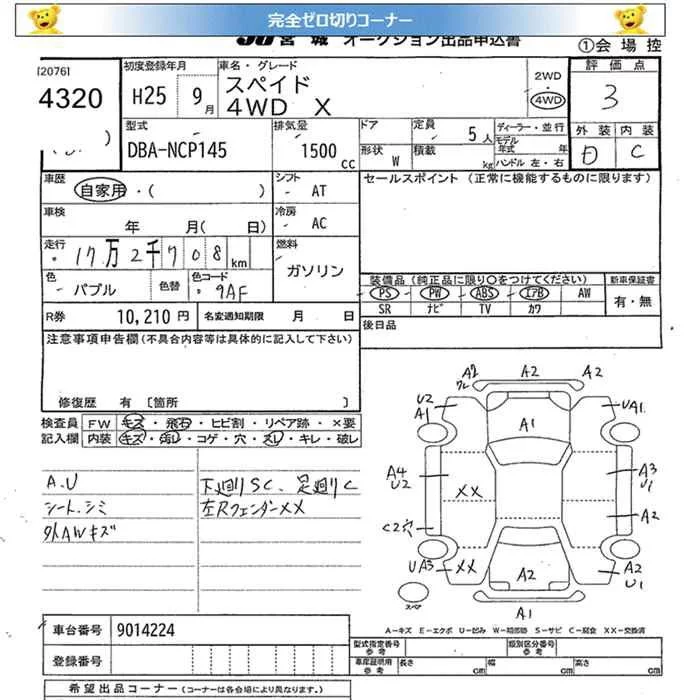 完全ゼロ切りコーナー
JU宮城 オークション出品申込書
①会場控
[2076]
4320
初度登録年月
H25 9月
車名・グレード
スペイド
4WD X
2WD
4WD
評価点
3
外装 内装
D C
型式
DBA-NCP145
排気量
1500 cc
ドア
形状 W
定員 5人
積載 kg
ディーラー・並行
モデル年式 年
ハンドル 左・右
車歴
自家用・( )
シフト
AT
セールスポイント (正常に機能するものに限ります)
車検
年 月( 日)
冷房
AC
走行
17万2千708km
燃料
ガソリン
色
パブル
色替
色コード
9AF
装備品(純正品に限り○をつけてください)
PS PW ABS エアB AW
SR ナビ TV カワ
新車保証書
有・無
R券 10,210円
名変通知期限 月 日
後日品
注意事項申告欄(不具合内容等は具体的に記入して下さい)
修復歴 有 [箇所
検査員記入欄
FW キズ・飛石・ヒビ割・リペア跡・×要
内装 キズ・汚レ・コゲ・穴・スレ・キレ・破レ
A.U
シート.シミ
外AWキズ
下廻りSC、足廻りC
左Rフェンダー××
A2 A2 A2
U2
A1
A1
UA1
A4
U2
××
A3
U1
A2
C2穴
UA3
××
A2
A2
U1
A1
スペア
A-キズ E-エクボ U-凹み W-補修跡 S-サビ C-腐食 XX-交換済
車台番号 9014224
登録番号
型式指定番号 参考
類別区分番号 参考
車庫証明用 参考
長さ cm 幅 cm 高さ cm
希望出品コーナー (コーナーは各会場により異なります。)